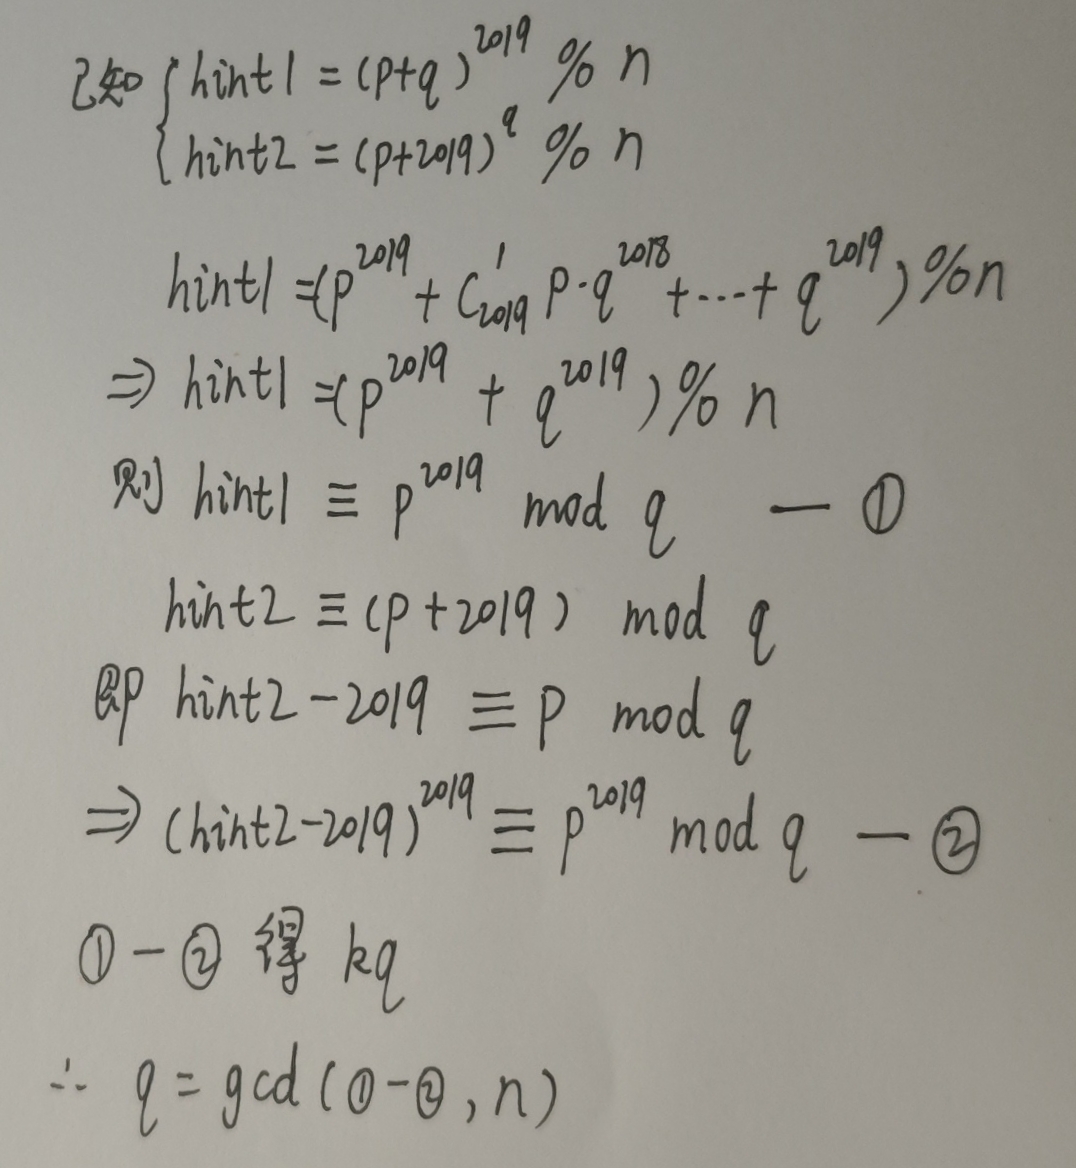 已知 { hint1 = (p+q)^2019 % n
hint2 = (p+2019)^q % n
hint1 =(p^2019 + C^1_2019 p·q^2018 +...+ q^2019) %n
⇒ hint1 =(p^2019 + q^2019) % n
则 hint1 ≡ p^2019 mod q — ①
hint2 ≡ (p+2019) mod q
即 hint2-2019 ≡ p mod q
⇒ (hint2-2019)^2019 ≡ p^2019 mod q — ②
①-② 得 kq
∴ q = gcd (①-②, n)